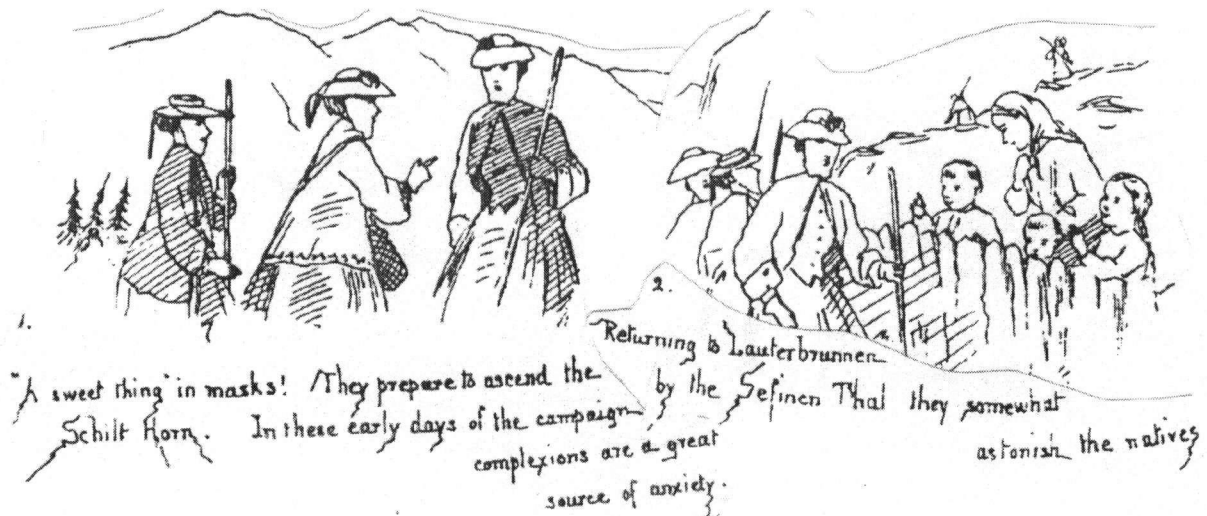 1.
"A sweet thing" in masks! They prepare to ascend the
Schilt Horn. In these early days of the campaign
complexions are a great
source of anxiety.
2.
Returning to Lauterbrunnen
by the Sefinen Thal they somewhat
astonish the natives